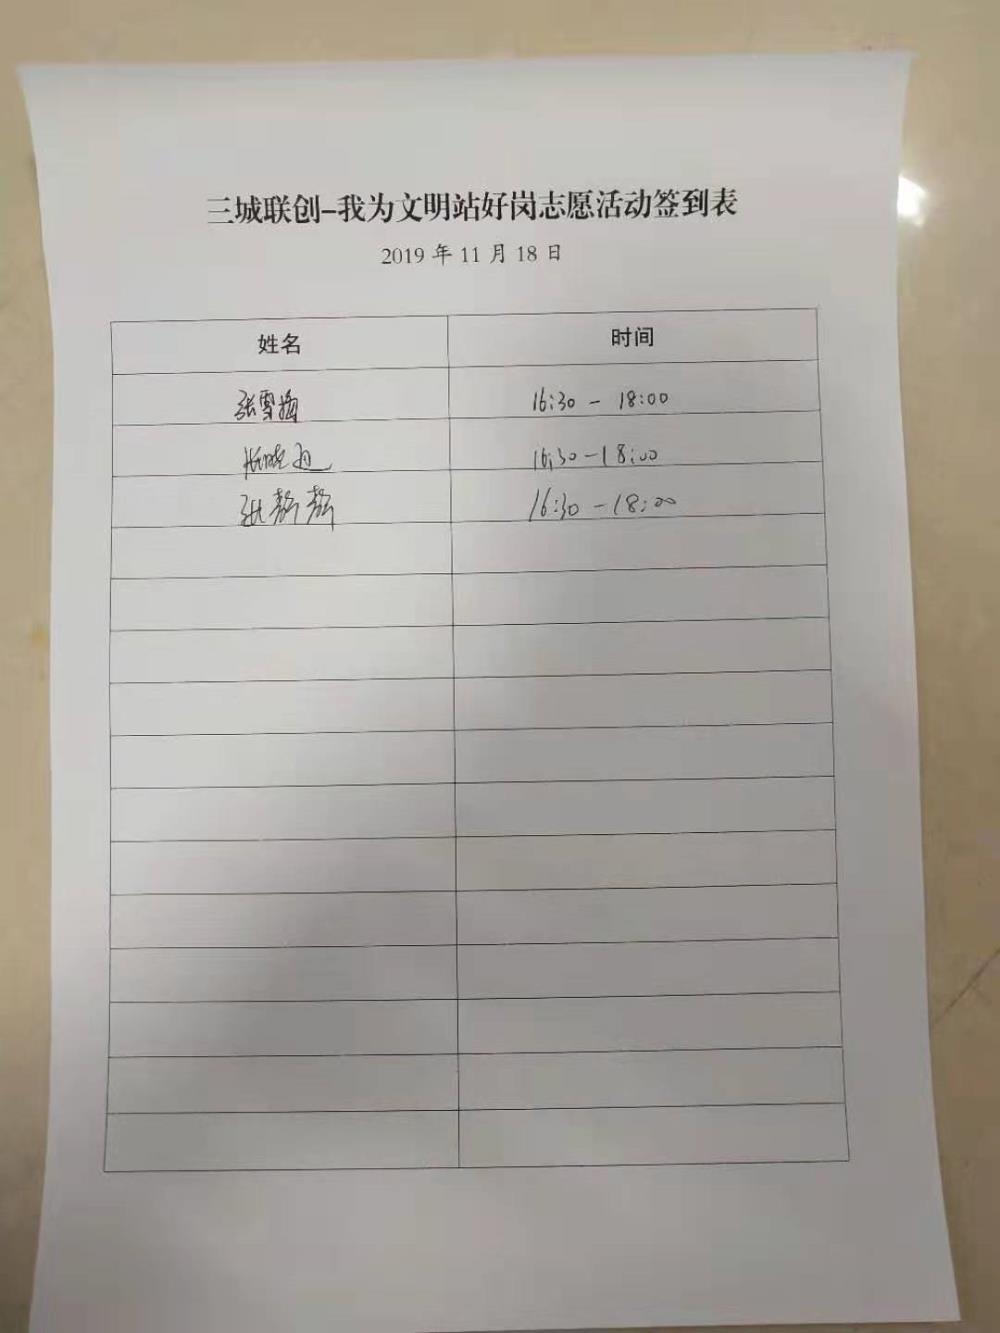 三城联创-我为文明站好岗志愿活动签到表
2019 年 11 月 18 日
姓名 时间
张雪梅 16:30 - 18:00
张晓 16:30 - 18:00
张静静 16:30 - 18:00